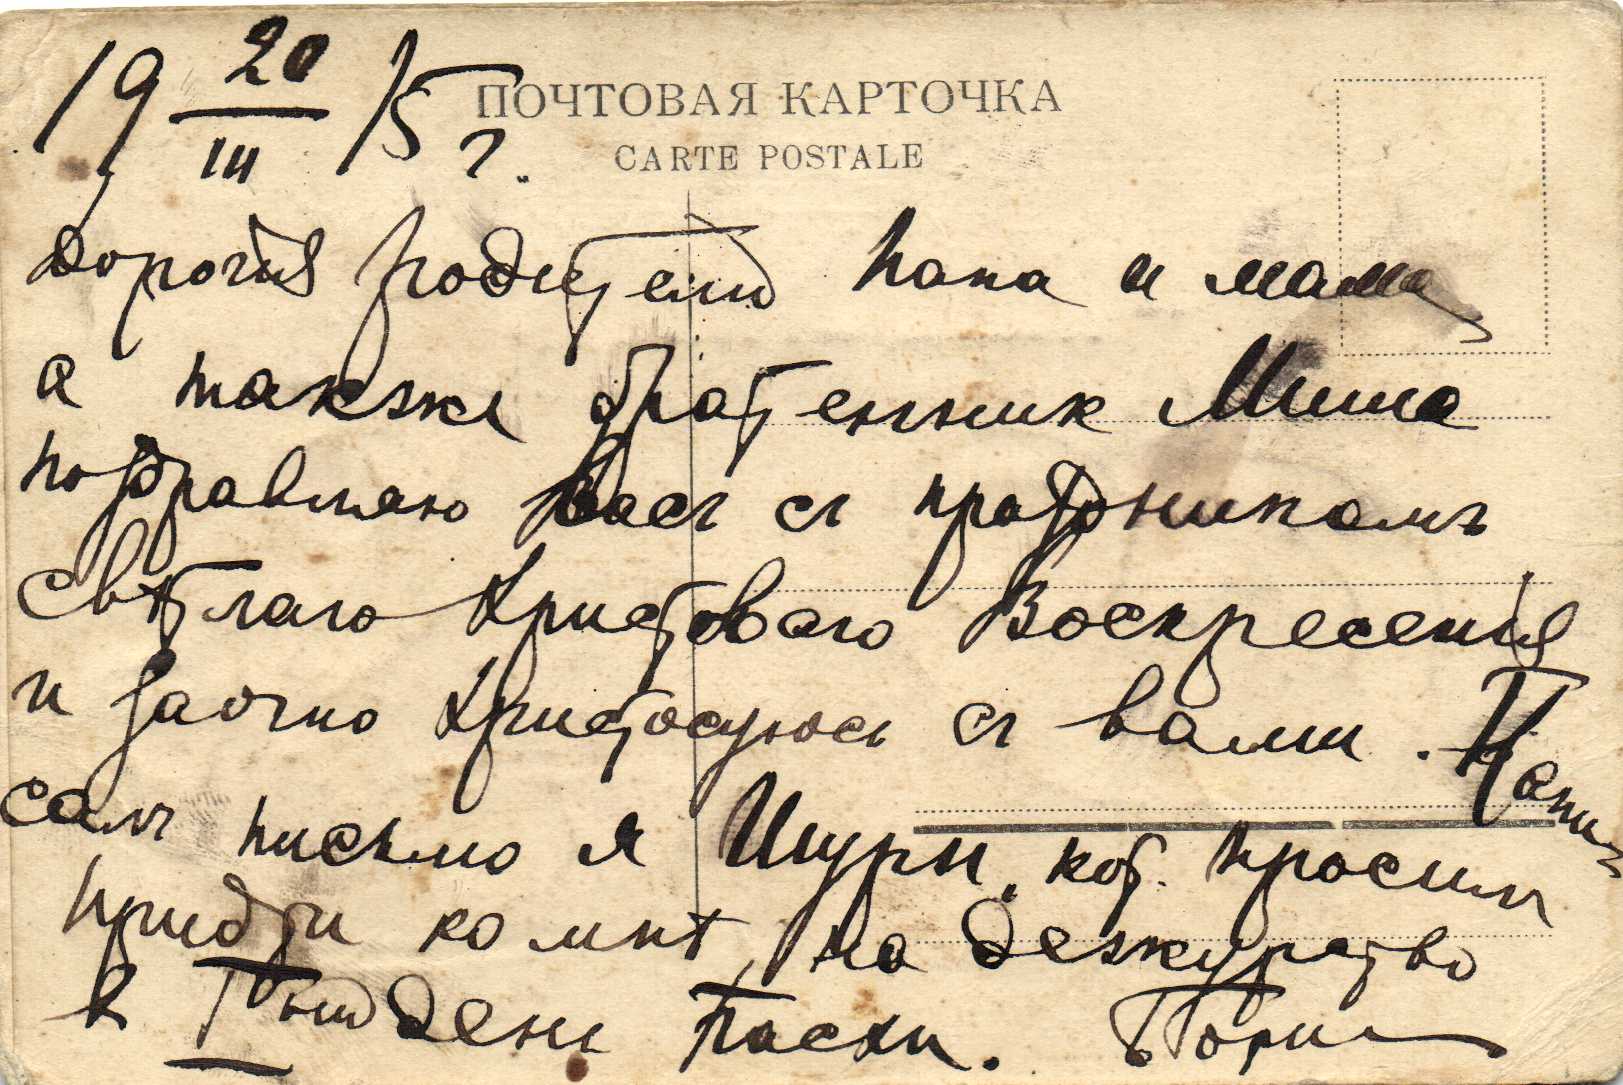 19 20/III 15 г.
ПОЧТОВАЯ КАРТОЧКА
CARTE POSTALE
Дорогія родители папа и мама
а также братенник Миша
поздравляю Васъ съ праздникомъ
свѣтлаго Христоваго Воскресенія
и заочно Христосуюсь съ вами. Напи-
салъ письмо я Шуры, кот. просилъ
придти ко мнѣ на дежурство
в I-ый день Пасхи. Борис